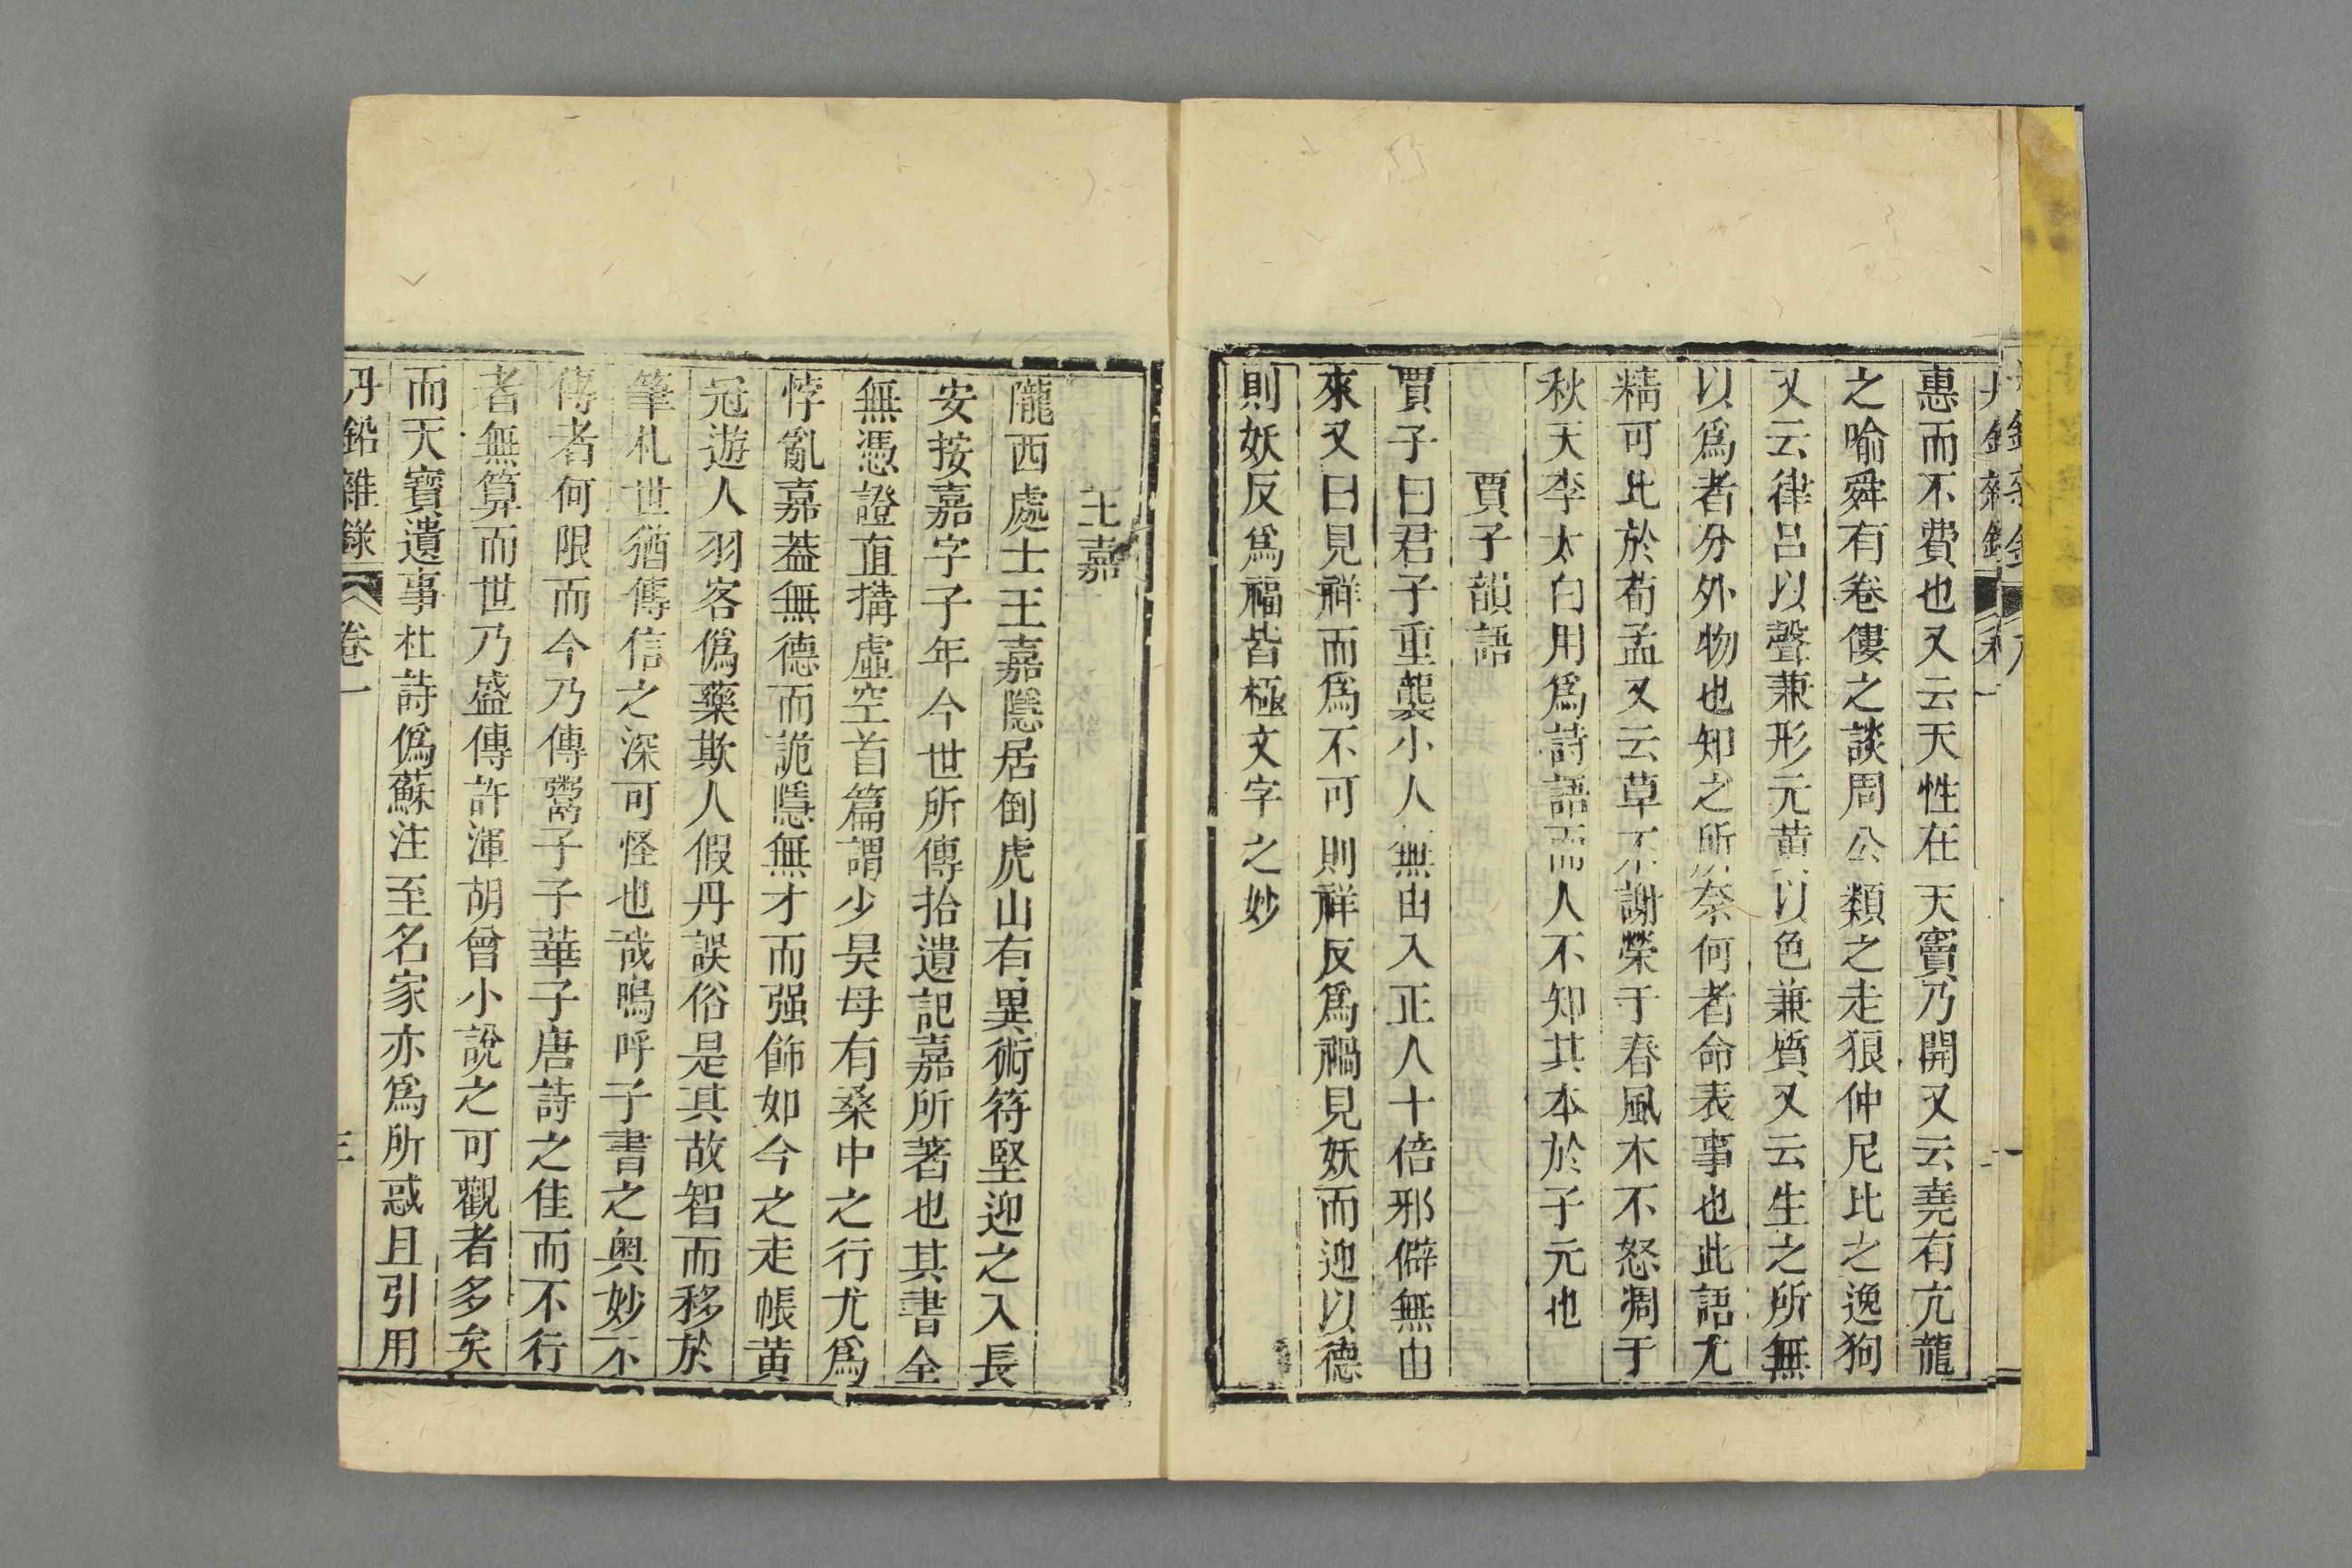 惠而不費也又云天性在天竇乃開又云堯有亢龍
之喻舜有卷僂之談周公類之走狼仲尼比之逸狗
又云律呂以聲兼形元黃以色兼質又云生之所無
以爲者分外物也知之所奈何者命表事也此語尤
精可比於荀孟又云草不謝榮于春風木不怒凋于
秋天李太白用爲詩語而人不知其本於子元也
賈子韻語
賈子曰君子重襲小人無由入正人十倍邪僻無由
來又曰見祥而爲不可則祥反爲禍見妖而迎以德
則妖反爲福皆極文字之妙
王嘉
隴西處士王嘉隱居倒虎山有異術符堅迎之入長
安按嘉字子年今世所傳拾遺記嘉所著也其書全
無憑證直搆虛空首篇謂少昊母有桑中之行尤爲
悖亂嘉葢無德而詭隱無才而强飾如今之走帳黃
冠遊人羽客僞藥欺人假丹誤俗是其故智而移於
筆札世猶傳信之深可怪也哉嗚呼子書之奥妙不
傳者何限而今乃傳鬻子子華子唐詩之佳而不行
者無算而世乃盛傳許渾胡曾小說之可觀者多矣
而天寶遺事杜詩僞蘇注至名家亦爲所惑且引用
丹鉛雜錄 卷一 三